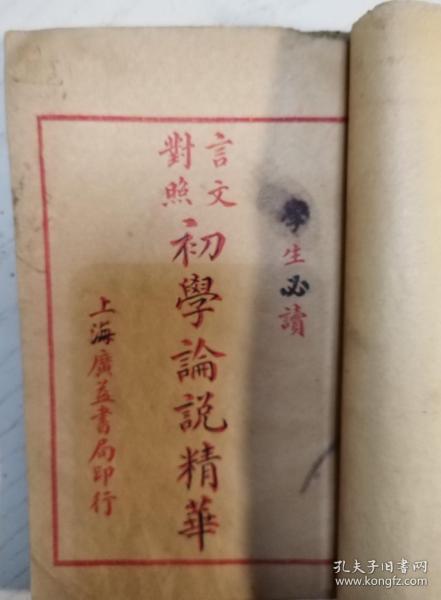 學生必讀
言文對照
初學論説精華
上海廣益書局印行
孔夫子旧书网
www.kongfz.com